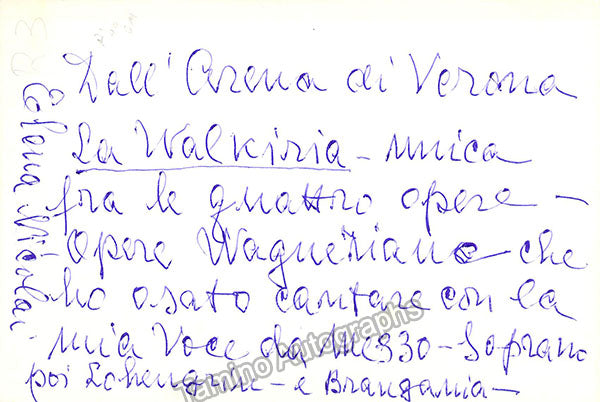 Dall' Arena di Verona
La Walkiria - unica
fra le quattro opere -
Opere Wagneriane - che
ho osato cantare con la
mia voce da Mezzo-Soprano
poi Lohengrin - e Brangania -
Elena Nicolai
Tamino Autographs